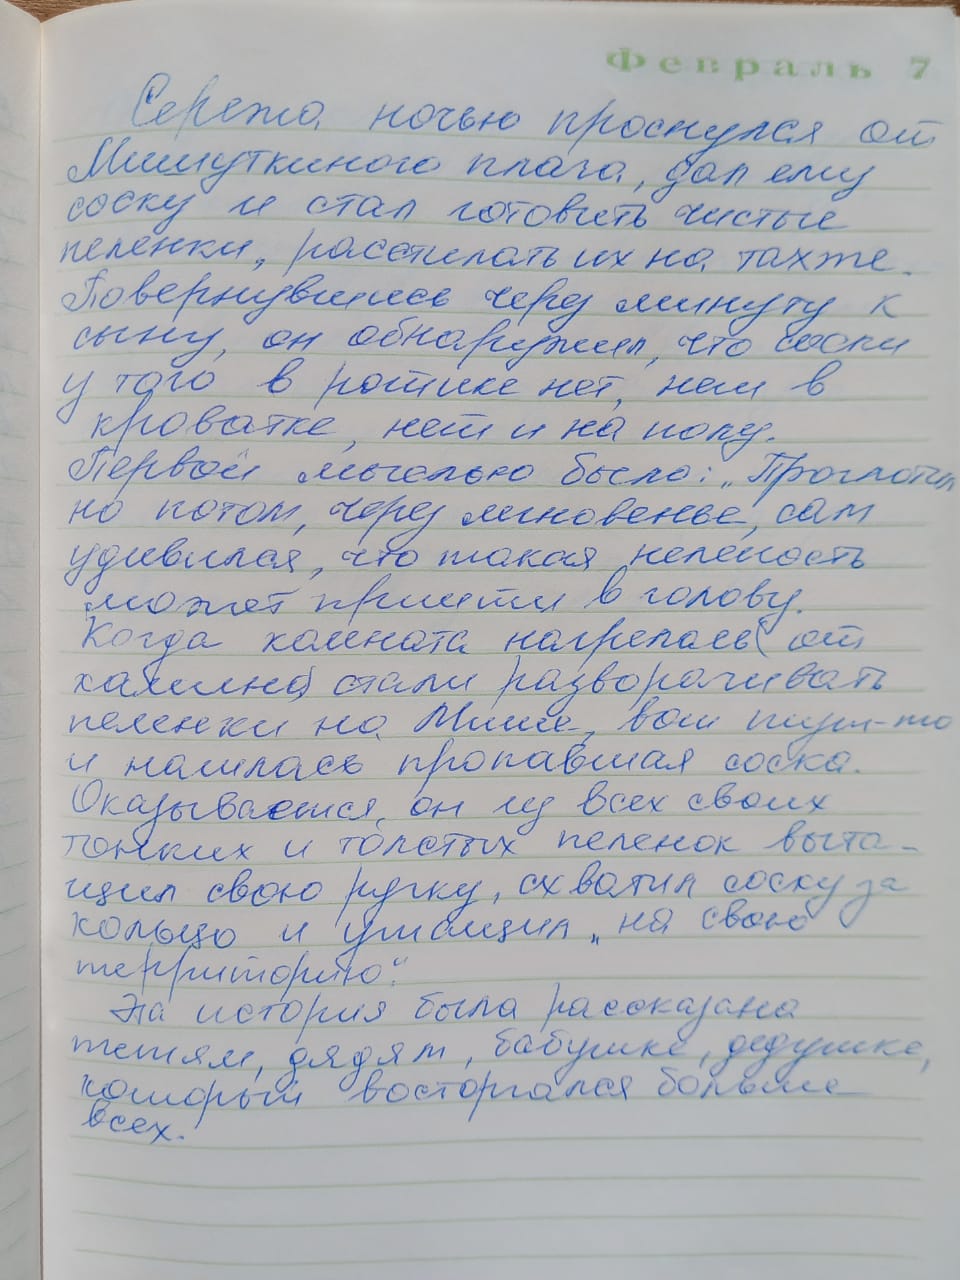 Февраль 7
Сережа ночью проснулся от
Мишуткиного плача, дал ему
соску и стал готовить чистые
пеленки, расстилать их на тахте.
Повернувшись через минуту к
сыну, он обнаружил, что соски
у того в ротике нет, нет в
кроватке, нет и на полу.
Первой мыслью было: „Проглотил
но потом, через мгновенье, сам
удивился, что такая нелепость
может прийти в голову.
Когда комната нагрелась (от
камина) стали разворачивать
пеленки на Мише, вот тут-то
и нашлась пропавшая соска.
Оказывается, он из всех своих
тонких и толстых пеленок выта-
щил свою ручку, схватил соску за
кольцо и утащил „на свою
территорию“.
Эта история была рассказана
тетям, дядям, бабушке, дедушке,
который восторгался больше
всех.